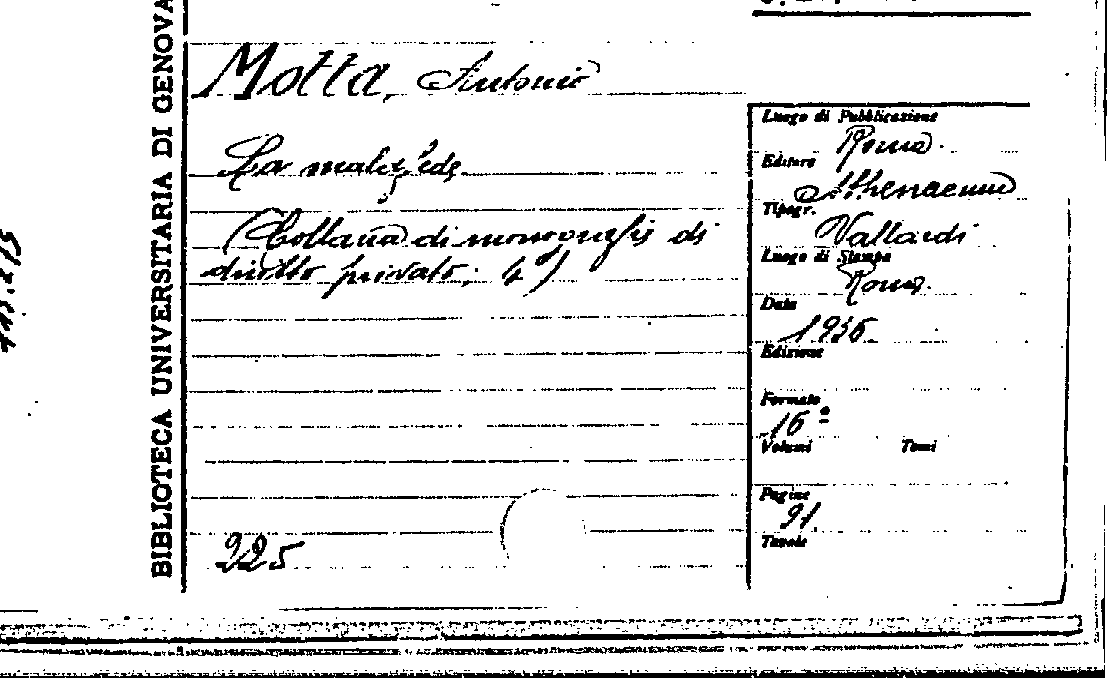 BIBLIOTECA UNIVERSITARIA DI GENOVA
Motta, Antonio
La mala fede
(Collana di monografie di
diritto privato; 4)
225
Luogo di Pubblicazione
Roma.
Editore
Athenaeum
Tipogr.
Vallardi
Luogo di Stampa
Roma.
Data
1936.
Edizione
Formato
16º
Volumi Tomi
Pagine
91.
Tavole